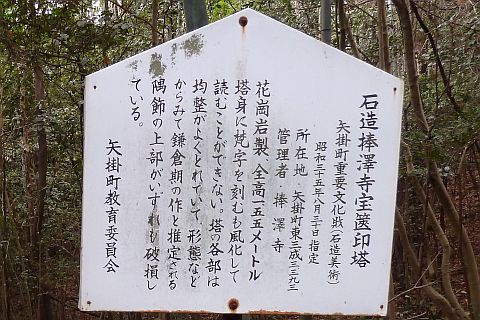 石造捧澤寺宝篋印塔
矢掛町重要文化財(石造美術)
昭和三十五年八月三十日指定
所在地・矢掛町東三成三二九三
管理者・捧澤寺
花崗岩製、全高一五五メートル
塔身に梵字を刻むも風化して
読むことができない。塔の各部は
均整がよくとれていて、形態など
からみて鎌倉期の作と推定される
隅飾の上部がいずれも破損し
ている。
矢掛町教育委員会